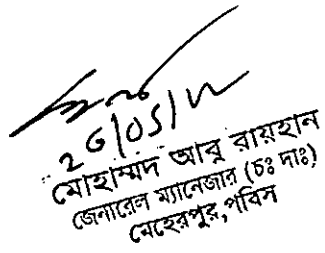 26/05/২
মোহাম্মদ আবু রায়হান
জেনারেল ম্যানেজার (চঃ দাঃ)
মেহেরপুর,পবিস